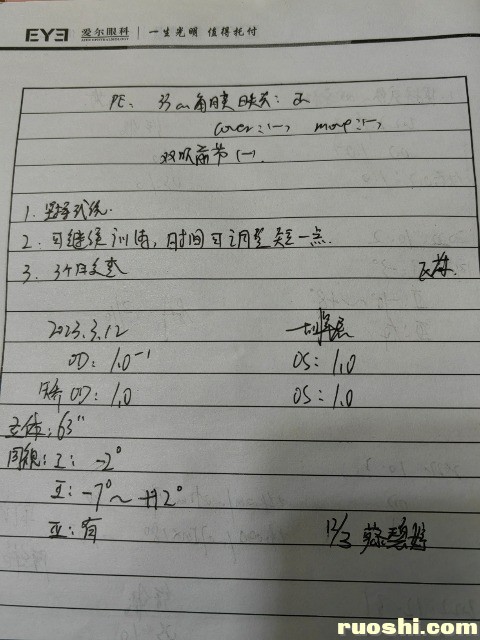 EYE 爱尔眼科 AIER OPHTHALMOLOGY 一生光明 值得托付
PE: 33cm角膜映光: 正
cover: (-), move: (-),
双眼前节(-).
1.
2. 可继续训练, 时间可调整短一点.
3. 3个月复查
2023.3.12
OD: 1.0⁻¹ OS: 1.0
OD: 1.0 OS: 1.0
立体: 63"
同视: I: -2°
II: -7°~+12°
III: 有
12/3
ruoshi.com